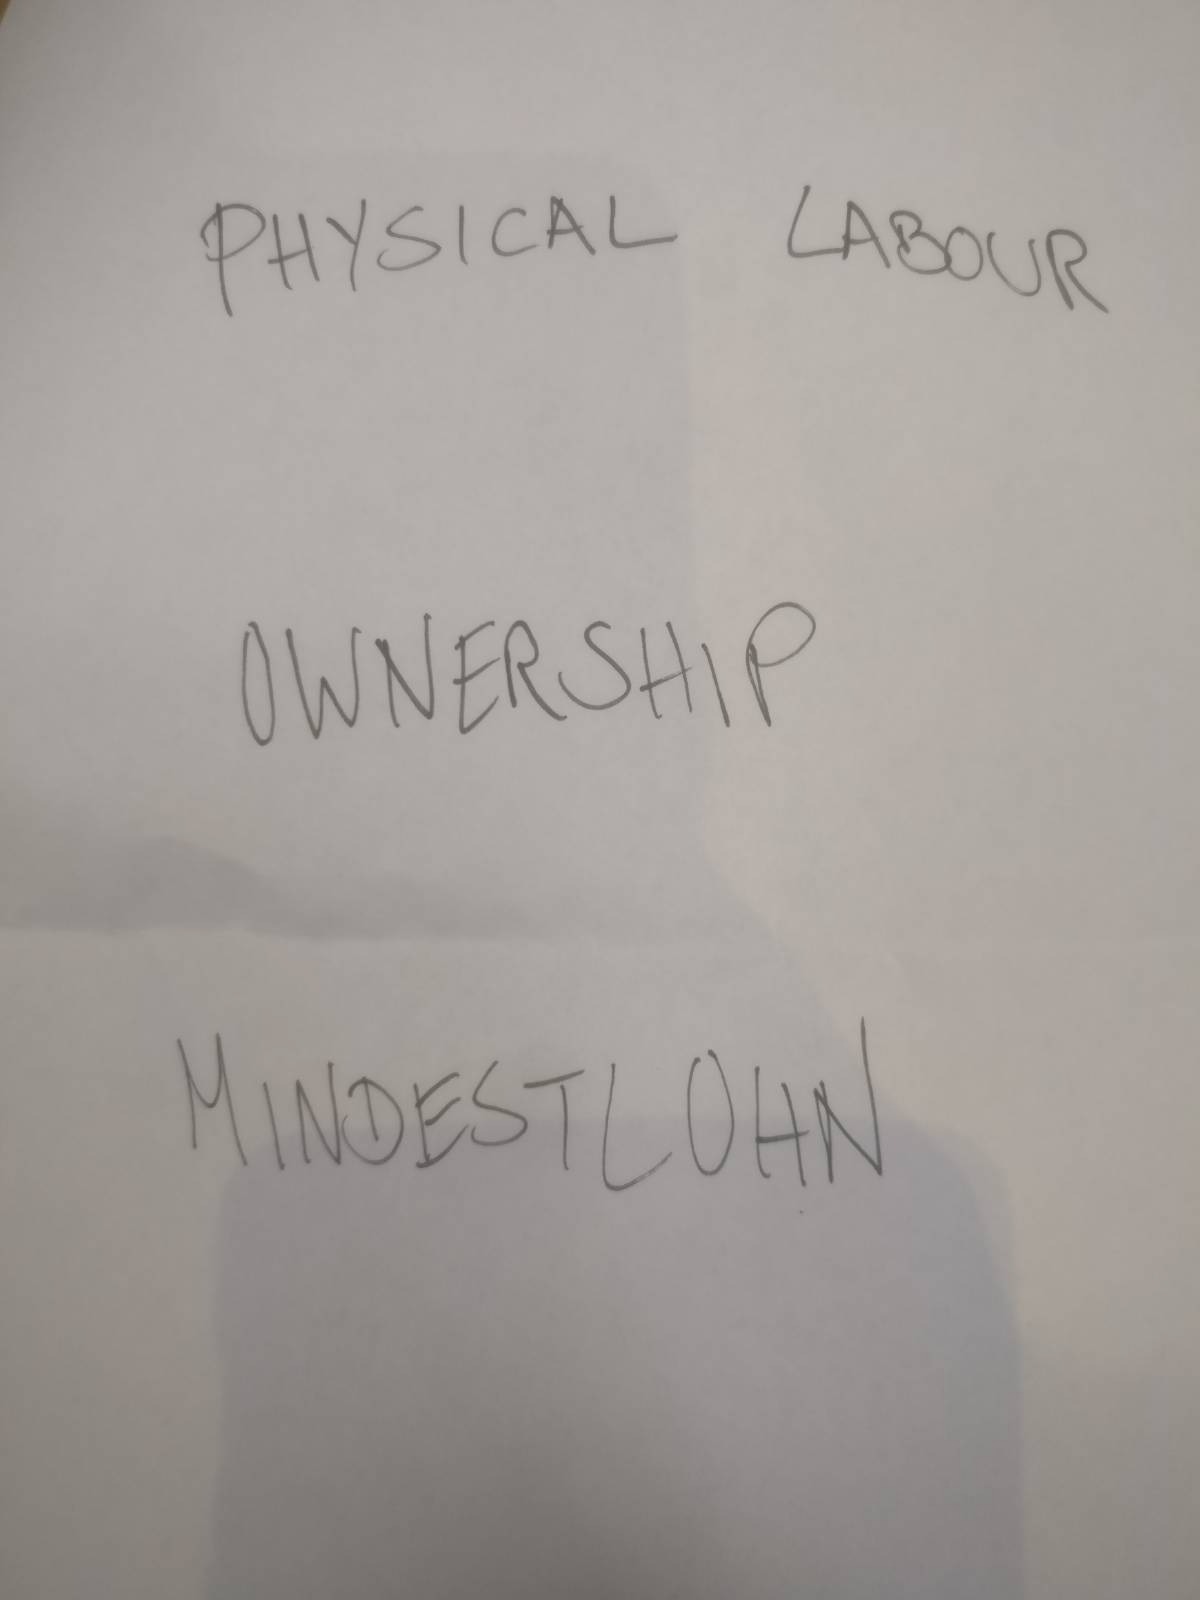 PHYSICAL LABOUR
OWNERSHIP
MINDESTLOHN